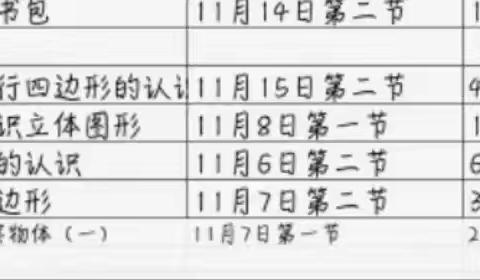 书包 11月14日第二节 1
行四边形的认识 11月15日第二节 4
识立体图形 11月8日第一节 1
的认识 11月6日第二节 6
边形 11月7日第二节 3
物体（一） 11月7日第一节 2